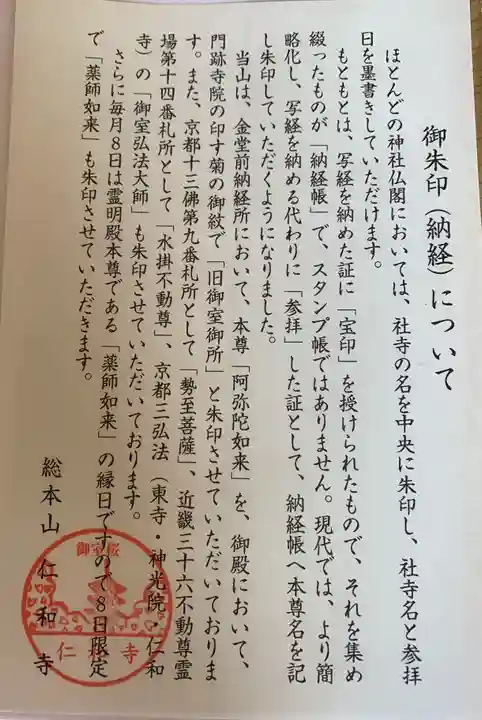 御朱印（納経）について
ほとんどの神社仏閣においては、社寺の名を中央に朱印し、社寺名と参拝
日を墨書きしていただけます。
もともとは、写経を納めた証に「宝印」を授けられたもので、それを集め
綴ったものが「納経帳」で、スタンプ帳ではありません。現代では、より簡
略化し、写経を納める代わりに「参拝」した証として、納経帳へ本尊名を記
し朱印していただくようになりました。
当山は、金堂前納経所において、本尊「阿弥陀如来」を、御殿において、
門跡寺院の印す菊の御紋で「旧御室御所」と朱印させていただいておりま
す。また、京都十三佛第九番札所として「勢至菩薩」、近畿三十六不動尊霊
場第十四番札所として「水掛不動尊」、京都三弘法（東寺・神光院・仁和
寺）の「御室弘法大師」も朱印させていただいております。
さらに毎月８日は霊明殿本尊である「薬師如来」の縁日ですので８日限定
で「薬師如来」も朱印させていただきます。
総本山　仁和寺
御室桜
仁和寺